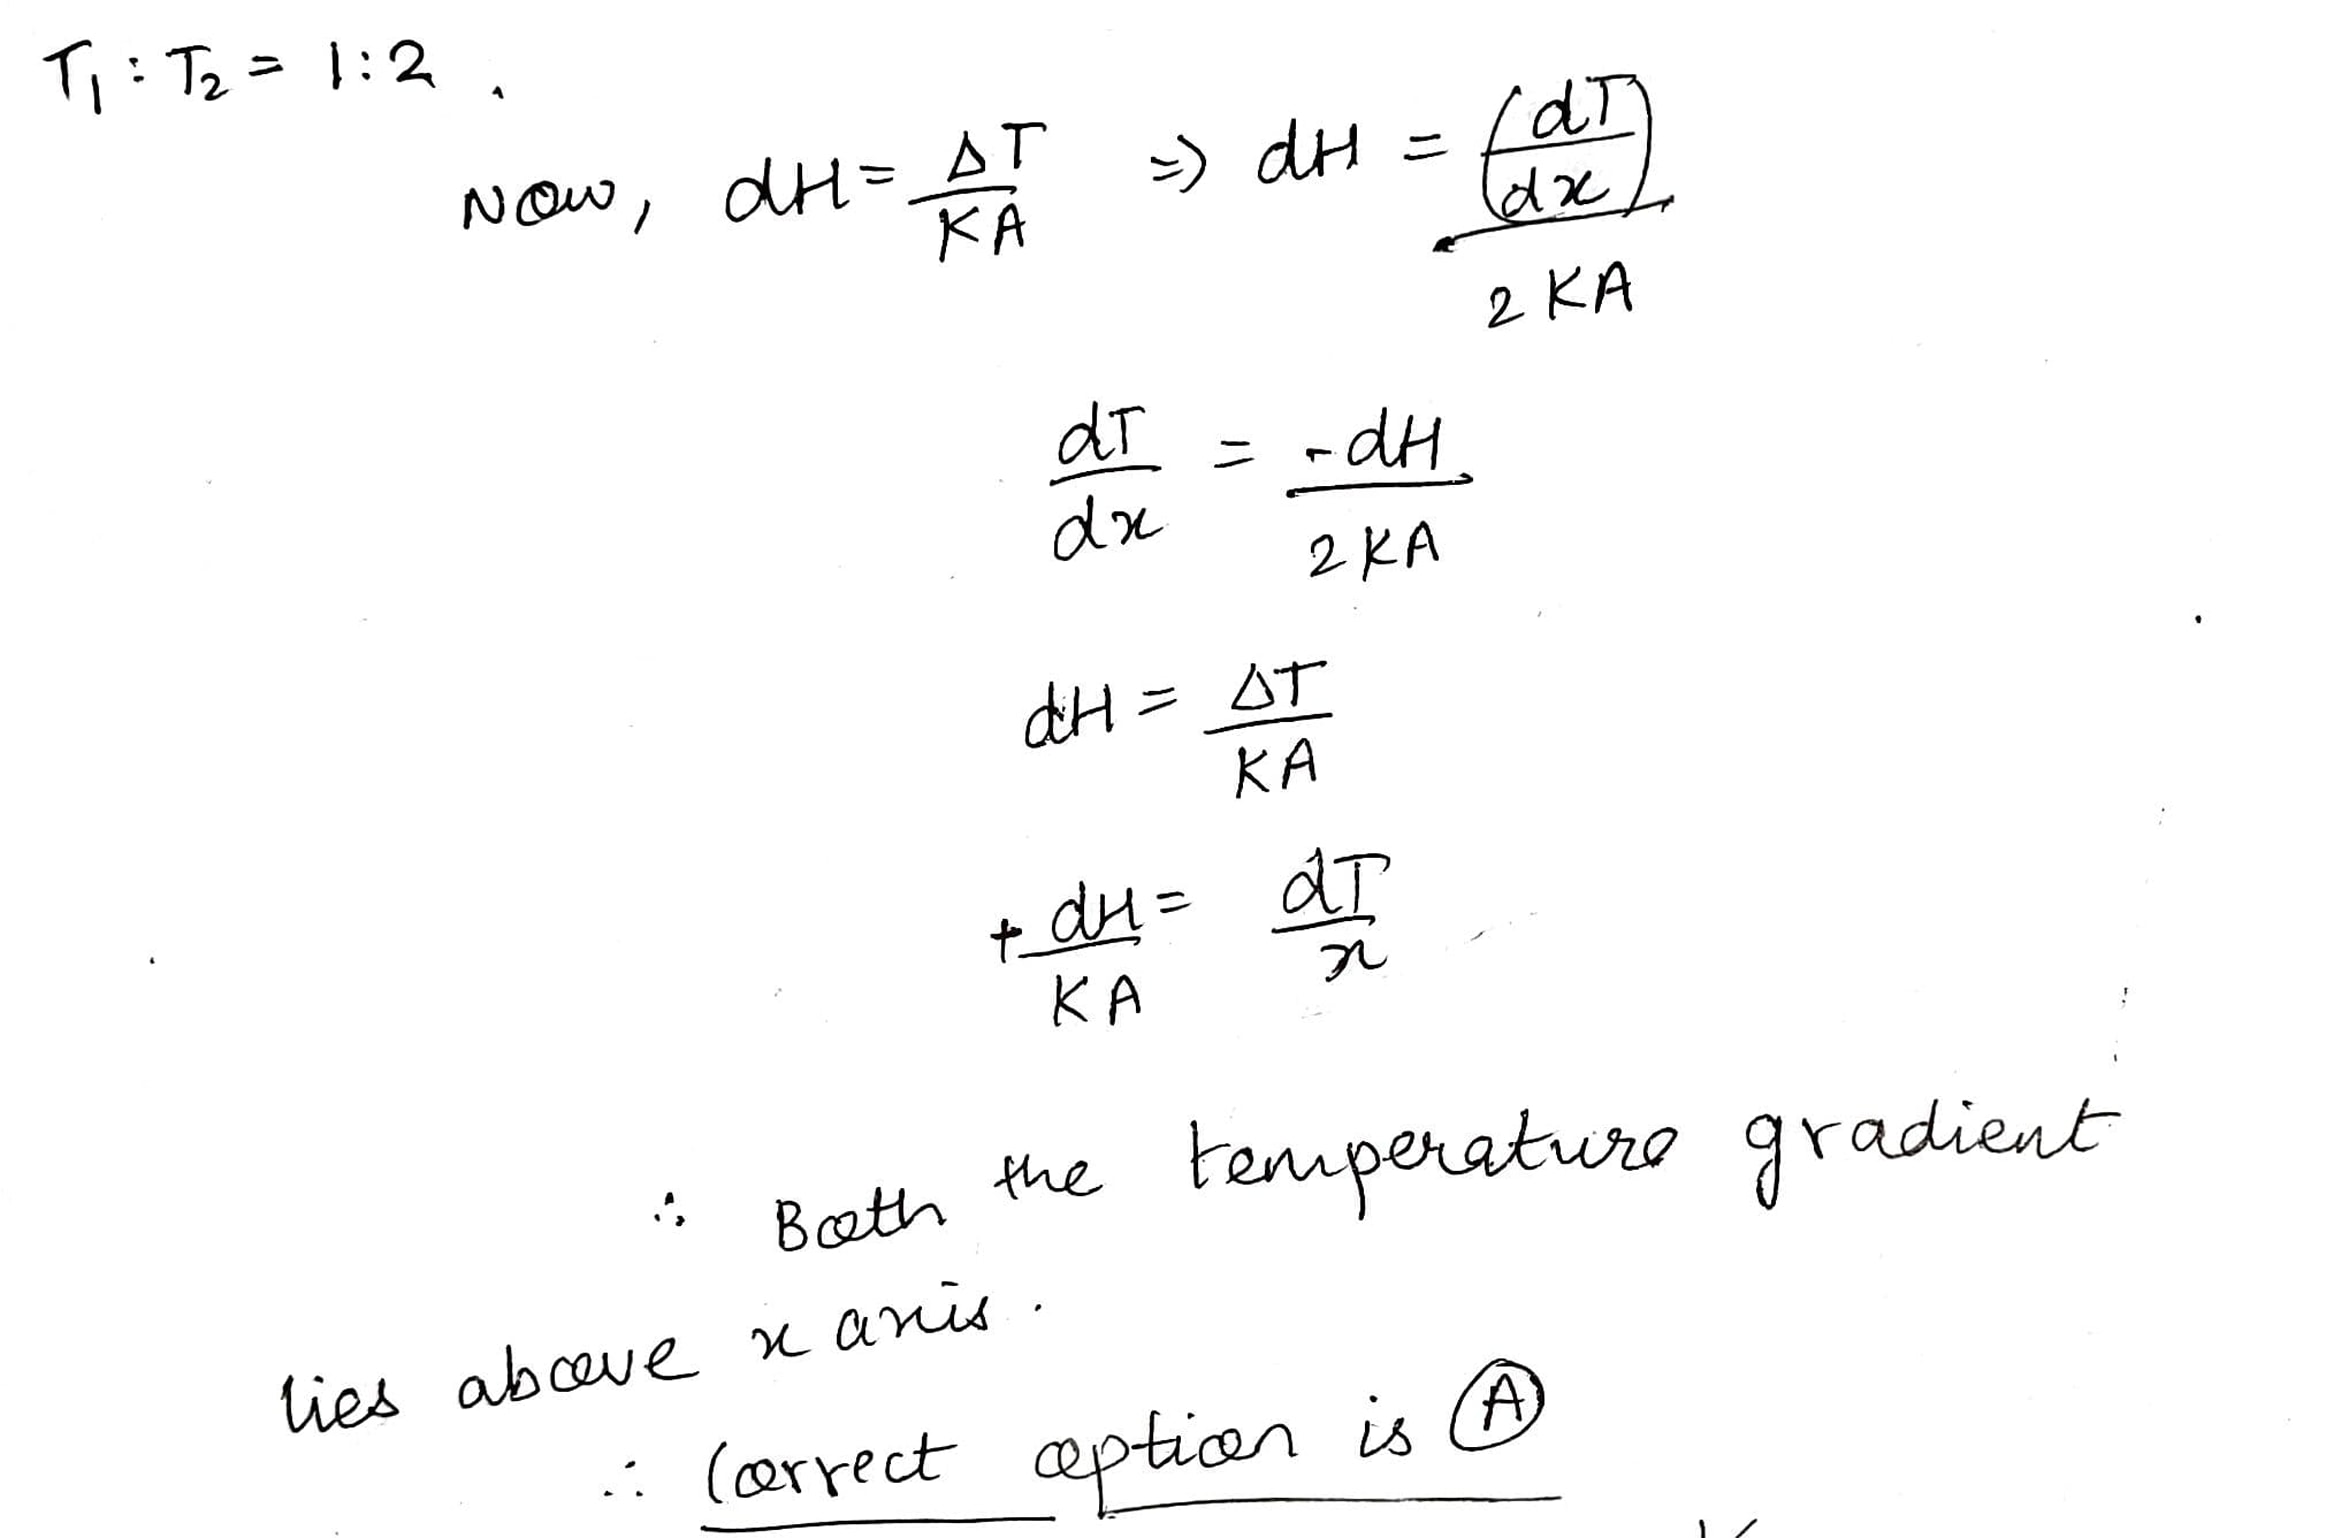 T₁ : T₂ = 1:2 .
Now, dH = ΔT/KA ⇒ dH = (dT/dx)/2KA
dT/dx = -dH/2KA
dH = ΔT/KA
+ dH/KA = dT/x
∴ Both the temperature gradient
lies above x axis.
∴ Correct option is Ⓐ